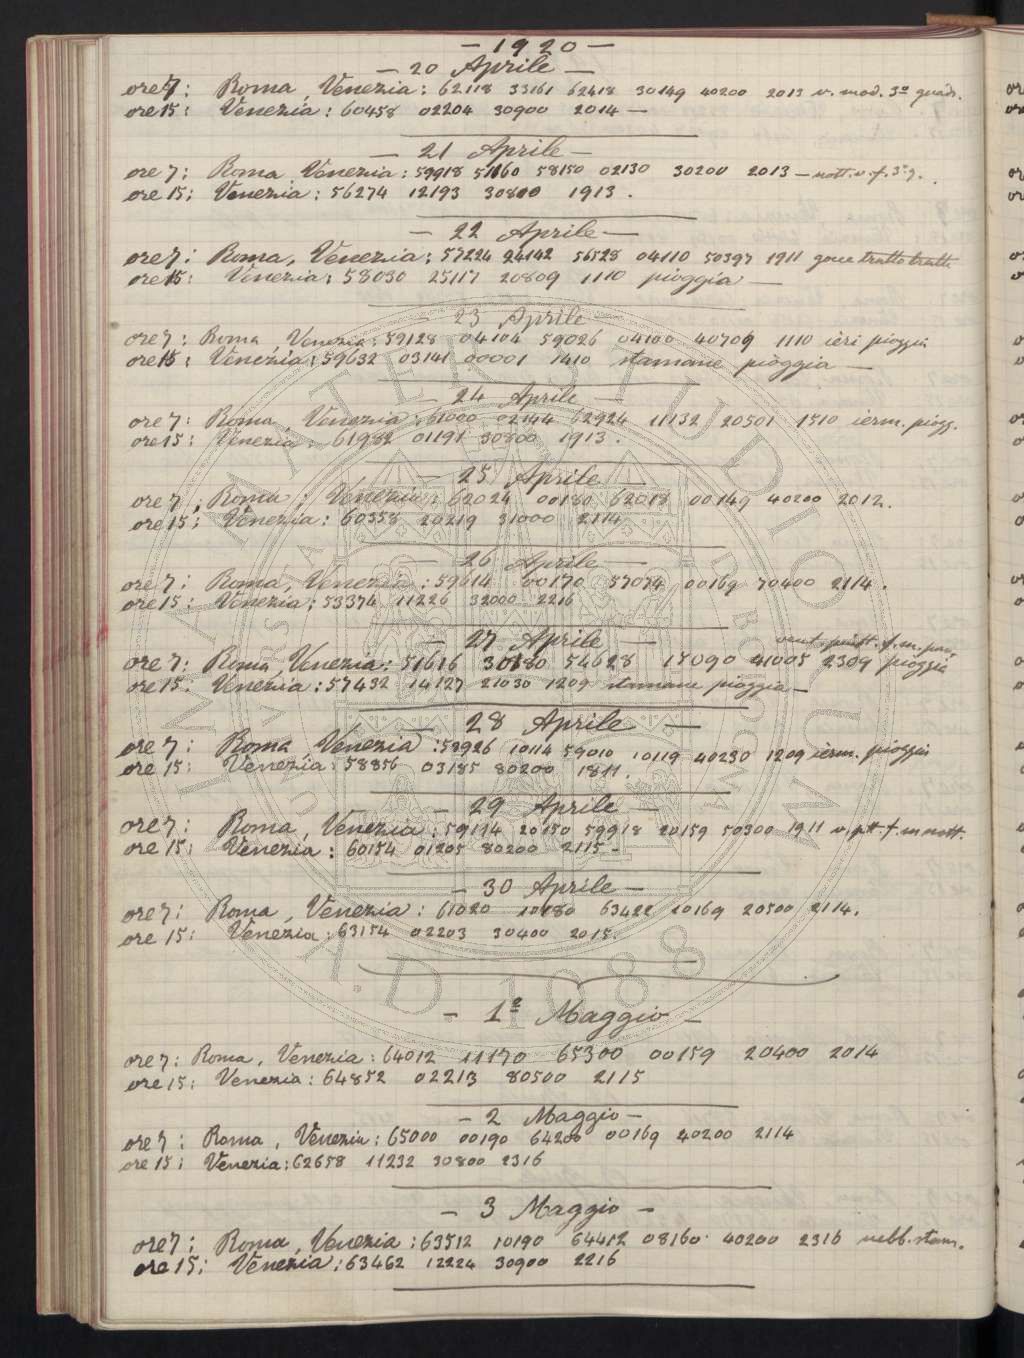 — 1920 —
— 20 Aprile —
ore 7: Roma, Venezia: 62118 33161 62418 30149 40200 2013 v. mod. 3º quad.
ore 15: Venezia: 60458 02204 30900 2014 —
— 21 Aprile —
ore 7: Roma, Venezia: 59918 51160 58150 02130 30200 2013 — nott. v. f. 3º q.
ore 15: Venezia: 56274 12193 30800 1913.
— 22 Aprile —
ore 7: Roma, Venezia: 57224 24142 56528 04110 50397 1911 gocce tratto tratto
ore 15: Venezia: 58030 25117 20809 1110 pioggia —
— 23 Aprile —
ore 7: Roma, Venezia: 59128 04104 59026 04100 40709 1110 ieri pioggia
ore 15: Venezia: 59632 03141 00001 1410 stamane pioggia —
— 24 Aprile —
ore 7: Roma, Venezia: 61000 02144 62924 11132 20501 1510 ierm. piogg.
ore 15: Venezia: 61982 01191 30800 1913.
— 25 Aprile —
ore 7; Roma, Venezia: 62024 00180 62018 00149 40200 2012.
ore 15; Venezia: 60358 20219 31000 2114
— 26 Aprile —
ore 7: Roma, Venezia: 59614 00170 57074 00169 70400 2114.
ore 15: Venezia: 53374 11226 32000 2216
— 27 Aprile —
ore 7: Roma, Venezia: 51616 30180 54628 15090 41005 2309 pioggia
ore 15: Venezia: 57432 14127 21030 1209 stamane pioggia —
— 28 Aprile —
ore 7: Roma, Venezia: 58926 10114 59010 10119 40230 1209 ierm. pioggia
ore 15: Venezia: 58856 03185 80200 1811.
— 29 Aprile —
ore 7: Roma, Venezia: 59114 20150 59918 20159 50300 1911 v. ptt f. m nott.
ore 15: Venezia: 60154 01205 80200 2115 —
— 30 Aprile —
ore 7: Roma, Venezia: 61020 10180 63422 10169 20500 2114.
ore 15: Venezia: 63154 02203 30400 2015.
— 1º Maggio —
ore 7: Roma, Venezia: 64012 11170 65300 00159 20400 2014
ore 15: Venezia: 64852 02213 80500 2115
— 2 Maggio —
ore 7: Roma, Venezia: 65000 00190 64200 00169 40200 2114
ore 15: Venezia: 62658 11232 30800 2316
— 3 Maggio —
ore 7: Roma, Venezia: 63512 10190 64412 08160 40200 2316 nebb. stam.
ore 15: Venezia: 63462 12224 30900 2216
ALMA MATER STUDIORUM
A.D. 1088